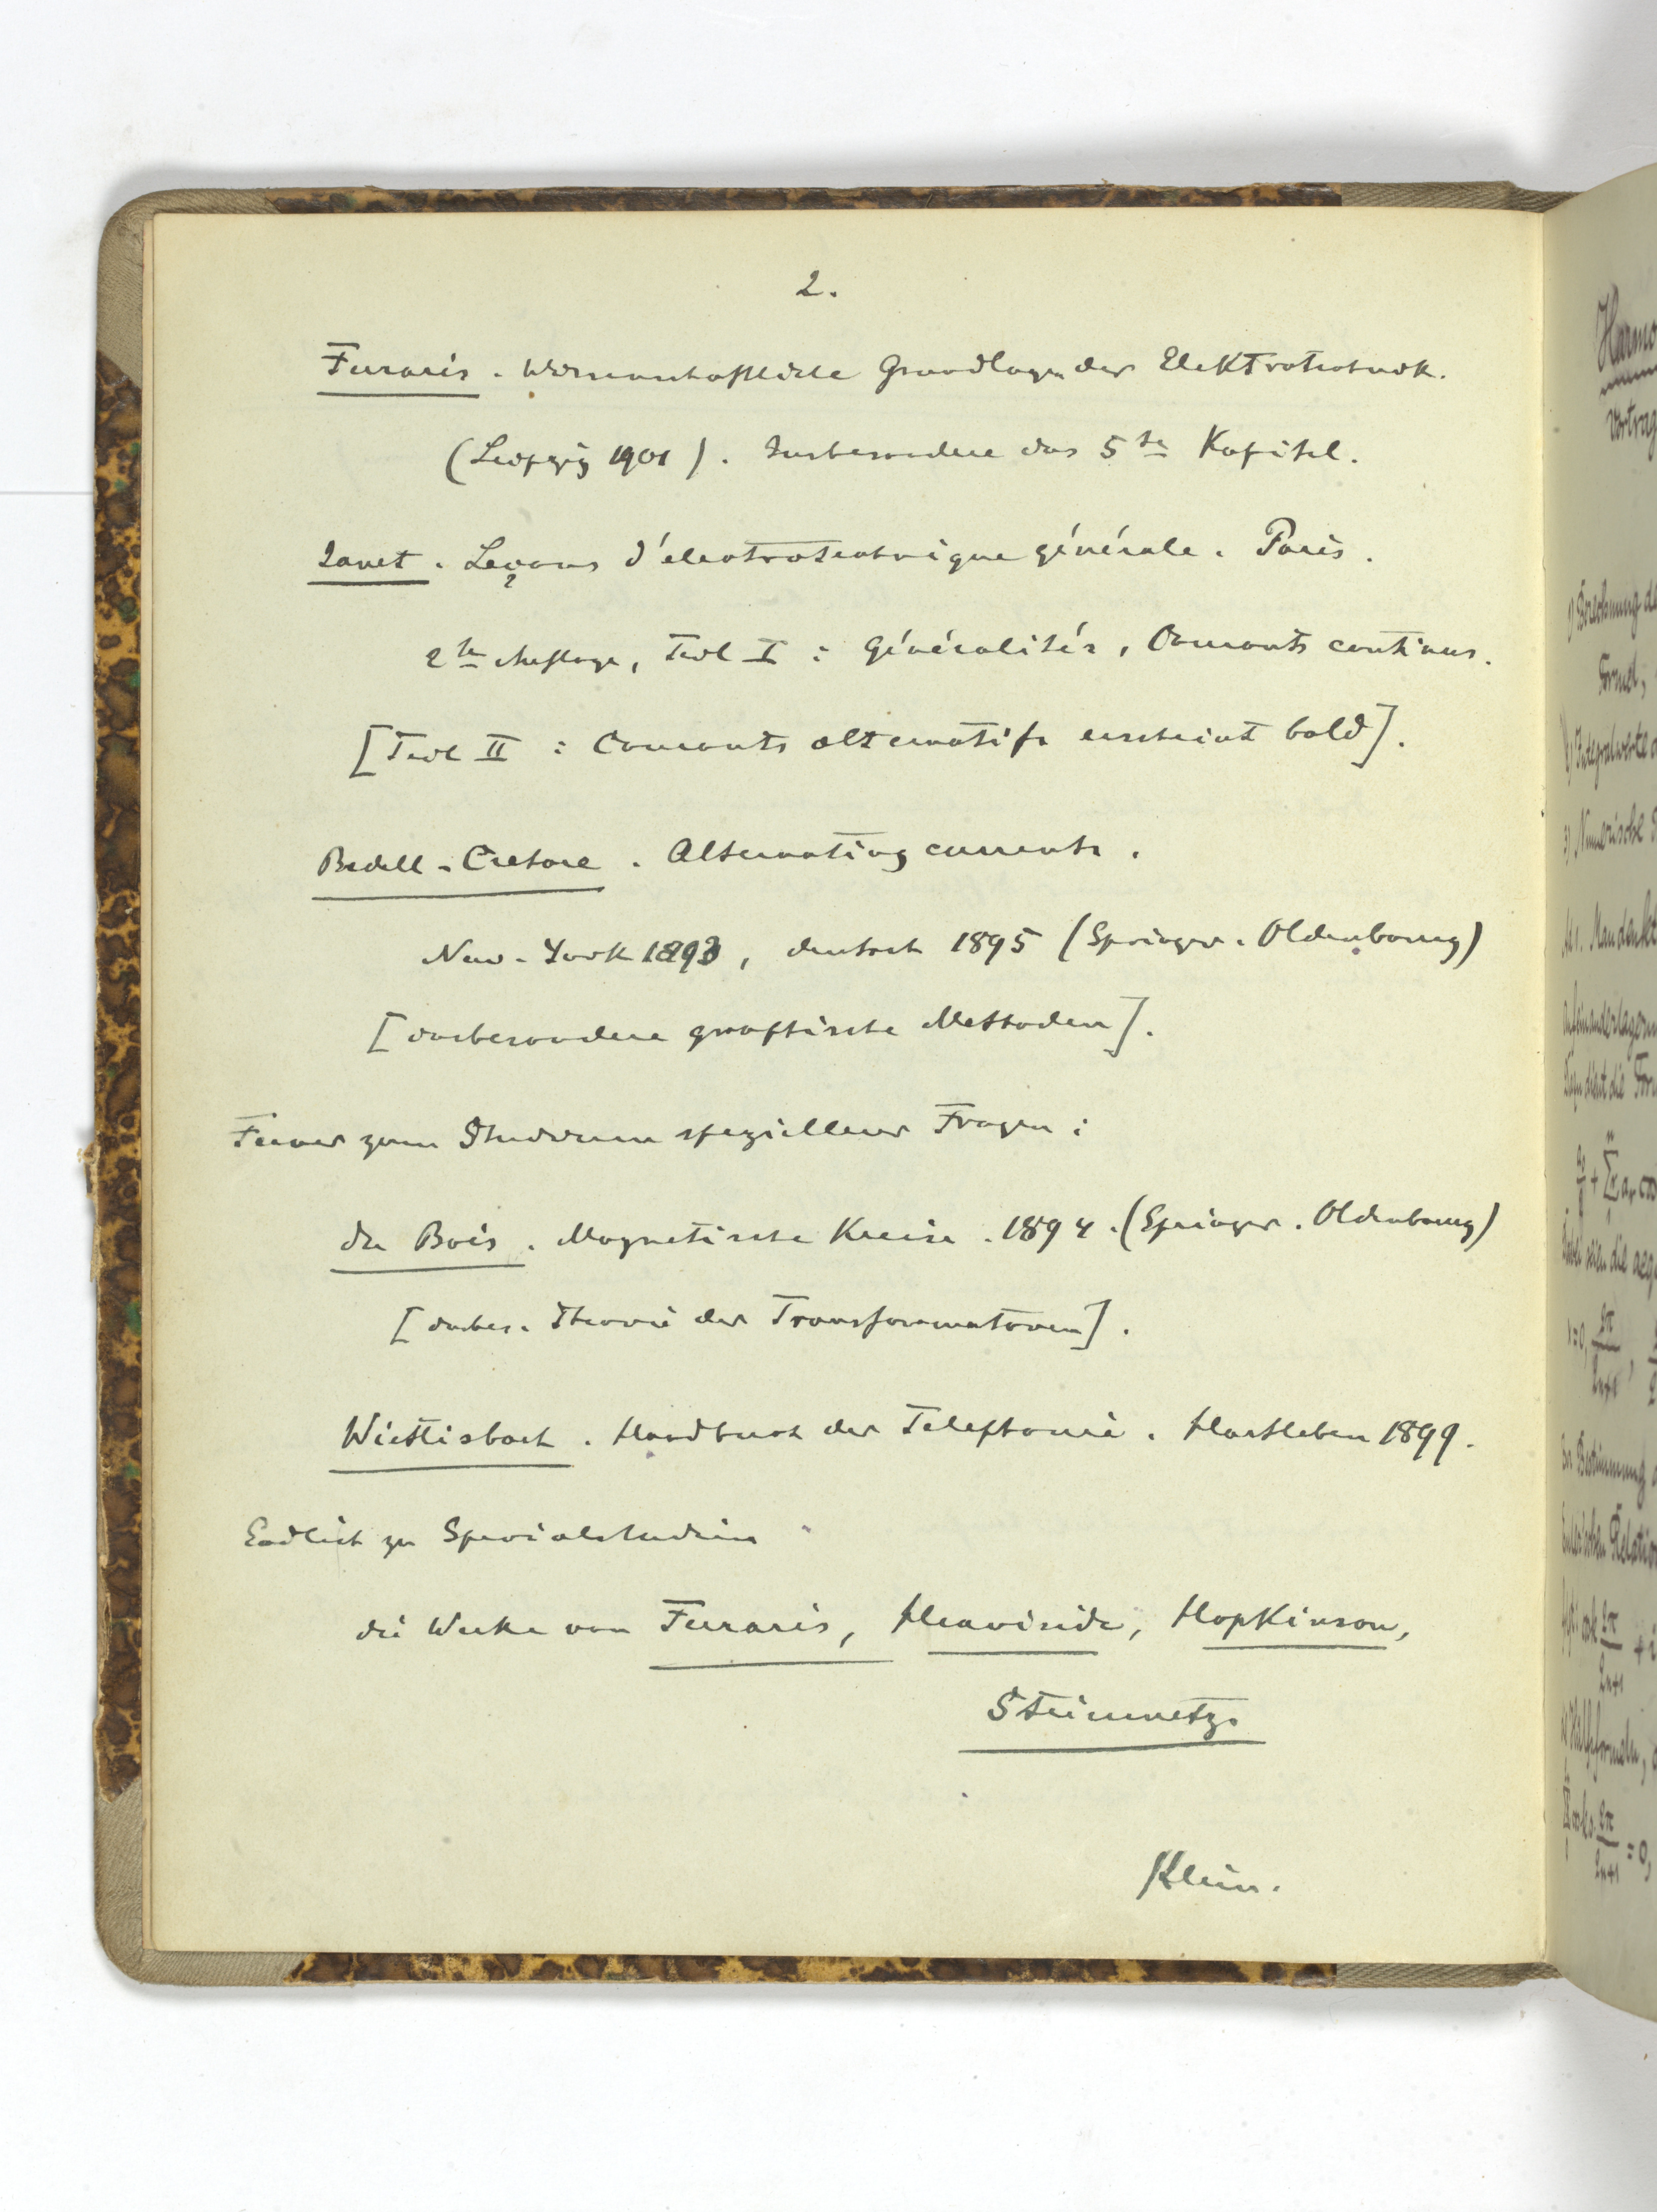 2.
Ferraris. Wissenschaftliche Grundlagen der Elektrotechnik.
(Leipzig 1901). Insbesondere das 5te Kapitel.
Janet. Leçons d'électrotechnique générale. Paris.
2te Auflage, Teil I: Généralités, Courants continus.
[Teil II: Courants alternatifs erscheint bald].
Bedell-Crehore. Alternating currents.
New-York 1893, deutsch 1895 (Springer. Oldenbourg)
[insbesondere graphische Methoden].
Ferner zum Studium spezieller Fragen:
du Bois. Magnetische Kreise. 1894. (Springer. Oldenbourg)
[insbes. Theorie der Transformatoren].
Wietlisbach. Handbuch der Telephonie. Hartleben 1899.
Endlich zu Spezialstudien
die Werke von Ferraris, Heaviside, Hopkinson,
Steinmetz.
Klein.
Harmo
Vortrag
1) Berechnung de
Formel,
2) Integralwerte
3) Numerische